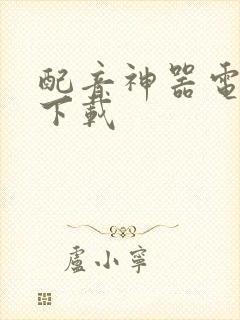 配音神器電
下載
盧小寧